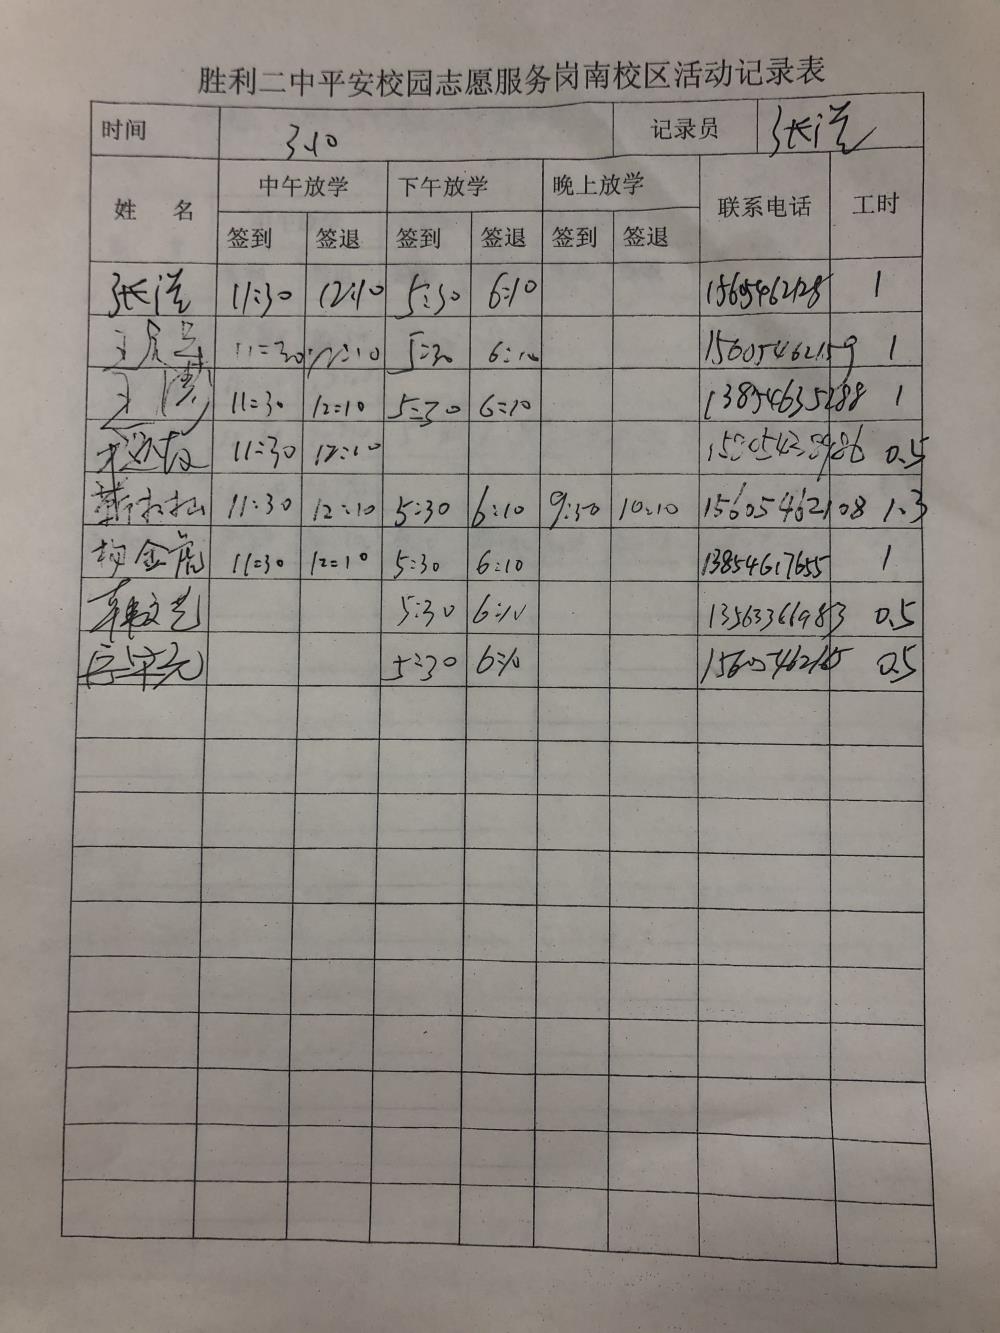 胜利二中平安校园志愿服务岗南校区活动记录表
时间 3.10 记录员 张洪
姓 名 中午放学 下午放学 晚上放学 联系电话 工时
签到 签退 签到 签退 签到 签退
张洪 11:30 12:10 5:30 6:10 1
11:30 12:10 5:30 6:10 15605462159 1
王 11:30 12:10 5:30 6:10 13854635288 1
11:30 12:10 0.5
靳 11:30 12:10 5:30 6:10 9:30 10:10 15605462108 1.3
金 11:30 12:10 5:30 6:10 13854617655 1
韩文艺 5:30 6:10 13563366983 0.5
5:30 6:10 15605462165 0.5